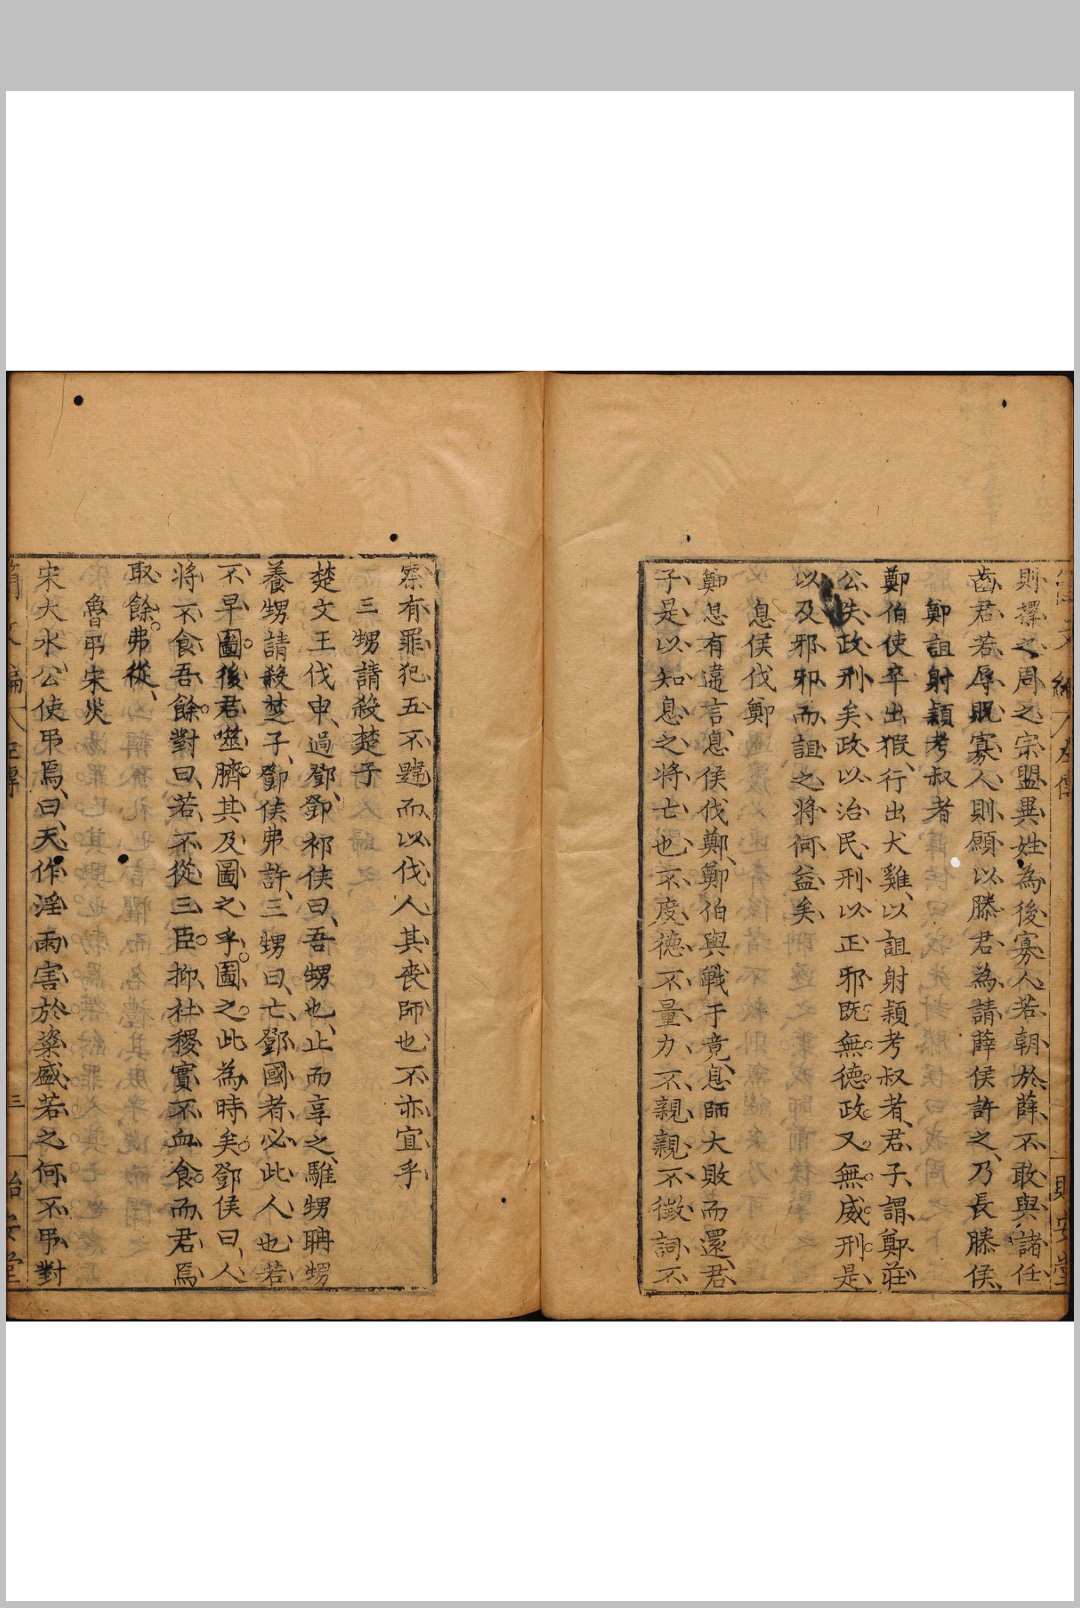 則擇之周之宗盟異姓為後寡人若朝於薛不敢與諸任
齒君若辱貺寡人則願以滕君為請薛侯許之乃長滕侯
鄭詛射穎考叔者
鄭伯使卒出猳行出犬雞以詛射穎考叔者君子謂鄭莊
公失政刑矣政以治民刑以正邪既無德政又無威刑是
以及邪邪而詛之將何益矣
息侯伐鄭
鄭息有違言息侯伐鄭鄭伯與戰于竟息師大敗而還君
子是以知息之將亡也不度德不量力不親親不徵詞不
察有罪犯五不韙而以伐人其喪師也不亦宜乎
三甥請殺楚子
楚文王伐申過鄧鄧祁侯曰吾甥也止而享之騅甥聃甥
養甥請殺楚子鄧侯弗許三甥曰亡鄧國者必此人也若
不早圖後君噬臍其及圖之乎圖之此為時矣鄧侯曰人
將不食吾餘對曰若不從三臣抑社稷實不血食而君焉
取餘弗從
魯弔宋災
宋大水公使弔焉曰天作淫雨害於粢盛若之何不弔對